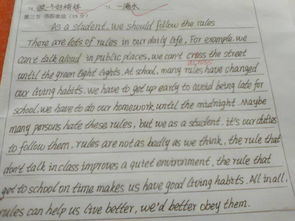 一滴水
As a student, we should follow the rules
There are lots of rules in our daily life. For example, we
can't talk aloud in public places, we can't cross the street
until the green light lights. At school, many rules have changed
our living habits. we have to get up early to avoid being late for
school, we have to do our homework until the midnight. Maybe
many persons hate these rules, but we as a student, it's our duties
to follow them. rules are not as badly as we think, the rule that
don't talk in class improves a quiet environment, the rule that
get to school on time makes us have good living habits. All in all,
rules can help us live better, we'd better obey them.